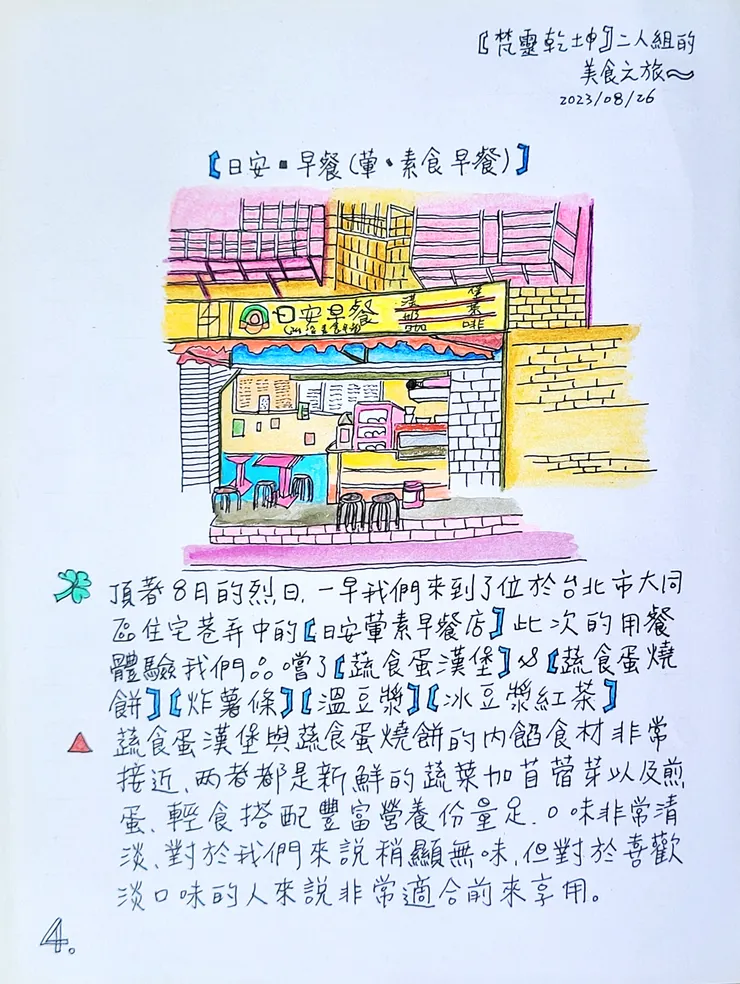 〖梵靈乾坤〗二人組的
美食之旅～
2023/08/26
【日安▪早餐(葷、素食早餐)】
日安早餐
漢 堡
奶 茶
咖啡
頂著8月的烈日,一早我們來到了位於台北市大同
區住宅巷弄中的【日安葷素早餐店】此次的用餐
體驗我們品嚐了【蔬食蛋漢堡】&【蔬食蛋燒
餅】【炸薯條】【溫豆漿】【冰豆漿紅茶】
蔬食蛋漢堡與蔬食蛋燒餅的內餡食材非常
接近、兩者都是新鮮的蔬菜加苜蓿芽以及煎
蛋、輕食搭配豐富營養份量足、口味非常清
淡、對於我們來說稍顯無味,但對於喜歡
淡口味的人來說非常適合前來享用。
4.